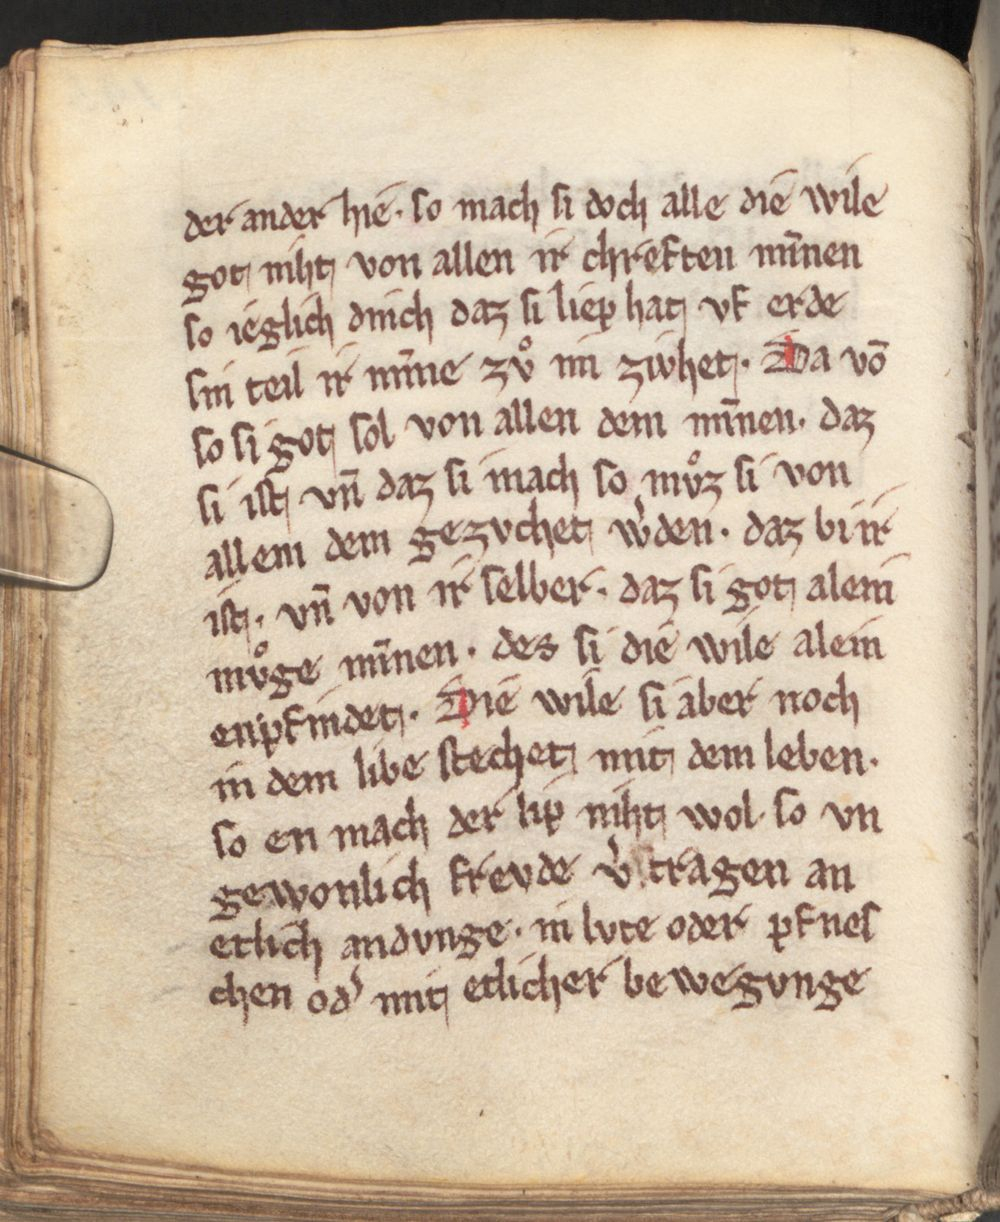 der ander hie · so mach si doch alle die wile
got niht von allen ir chreften mīnen
so ieglich dinch daz si liep hat vf erde
sin teil ir mīne zvͦ im zivhet · Da vō
so si got sol von allen dem mīnen · daz
si ist vn̄ daz si mach so mvͦz si von
allem dem gezvchet w̓den · daz bi ir
ist · vn̄ von ir selber · daz si got alein
mvͦge mīnen · des si die wile alein
enpfindet · Die wile si aber noch
in dem libe stechet mit dem leben ·
so en mach der lip niht wol · so vn
gewonlich frevde v̓tragen an
etlich andvnge · in lvte oder pfnes
chen od̓ mit etlicher bewegvnge